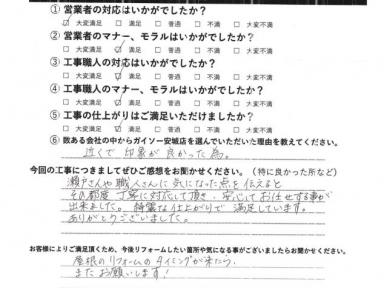 ① 営業者の対応はいかがでしたか？
☑ 大変満足 □ 満足 □ 普通 □ 不満 □ 大変不満
② 営業者のマナー、モラルはいかがでしたか？
□ 大変満足 ☑ 満足 □ 普通 □ 不満 □ 大変不満
③ 工事職人の対応はいかがでしたか？
□ 大変満足 ☑ 満足 □ 普通 □ 不満 □ 大変不満
④ 工事職人のマナー、モラルはいかがでしたか？
□ 大変満足 ☑ 満足 □ 普通 □ 不満 □ 大変不満
⑤ 工事の仕上がりはご満足いただけましたか？
□ 大変満足 ☑ 満足 □ 普通 □ 不満 □ 大変不満
⑥ 数ある会社の中からガイソー安城店を選んでいただいた理由を教えてください。
近くて印象が良かった為。
今回の工事につきましてぜひご感想をお聞かせください。（特に良かった所など）
瀬戸さんや職人さんに気になった点を伝えると
その都度丁寧に対応して頂き、安心してお任せする事が
出来ました。綺麗な仕上がりで満足しています。
ありがとうございました。
お客様によりご満足頂くため、今後リフォームしたい箇所や気になる事がございましたらお聞かせください。
屋根のリフォームのタイミングが来たら、
またお願いします！